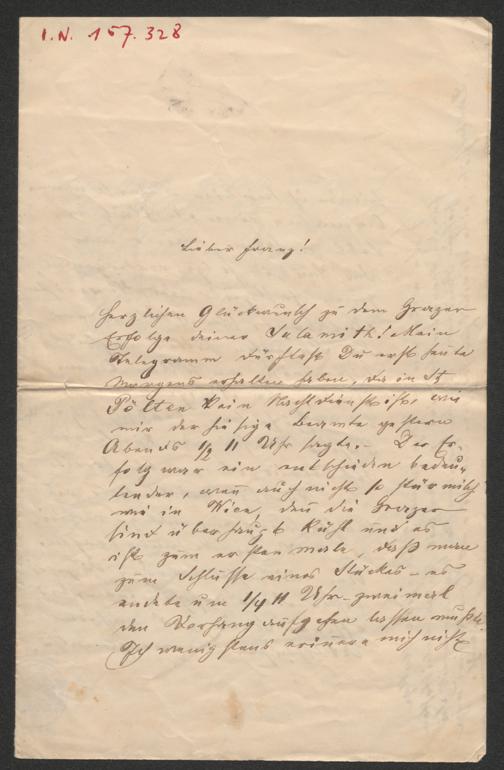 I.N. 157.328
Lieber Franz!
Herzlichen Glückwunsch zu dem Grazer
Erfolge deiner Sulamith! Mein
Telegramm dürftest Du erst heute
Morgens erhalten haben, da in St
Pölten kein Nachtdienst ist, wie
mir der hiesige Beamte gestern
Abends 1/2 11 Uhr sagte. – Der Er-
folg war ein entschieden bedeu-
tender, wenn auch nicht so stürmisch
wie in Wien, den die Grazer
sind überhaupt kühl und es
ist zum ersten male, daß man
zum Schlusse eines Stückes – es
endete um 1/4 11 Uhr – zweimal
den Vorhang aufgehen lassen mußte.
Ich wenigstens erinnere mich nicht